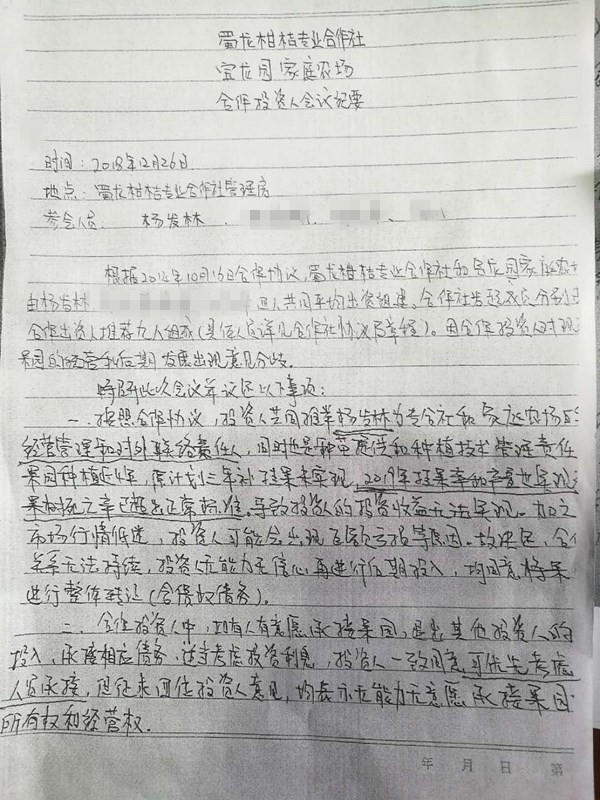 蜀龙柑桔专业合作社
宜龙园家庭农场
合伙投资人会议纪要
时间:2018年12月26日
地点:蜀龙柑桔专业合作社管理房
参会人员 杨发林 、 、
根据2014年10月16日合伙协议,蜀龙柑桔专业合作社和宜龙园家庭农
由杨发林 四人共同平均出资组建。合作社发起成员分别由
合伙出资人推荐九人组成(具体人员详见合作社协议及章程)。因合伙投资人对现
果园的经营和后期发展出现意见分歧。
特召开此次会议并议定以下事项:
一、按照合伙协议,投资人共同推举杨发林为专合社和家庭农场的
经营管理和对外联络责任人,同时也是种苗提供和种植技术管理责任
果园种植近4年,原计划三年初挂果未实现,2019年挂果率和产量也实现
果树死亡率已超出正常标准。导致投资人的投资收益无法实现。加之
市场行情低迷,投资人可能会出现巨额亏损等原因。故决定,合伙
关系无法持续,投资人无能力无信心再进行后期投入,均同意将果
进行整体转让(含债权债务)。
二、合伙投资人中,如有人有意愿承接果园,退出其他投资人的
投入,承接相应债务,适当考虑投资利息,投资人一致同意可优先考虑
人员承接,但征求四位投资人意见,均表示无能力无意愿承接果园
所有权和经营权.
年 月 日 第